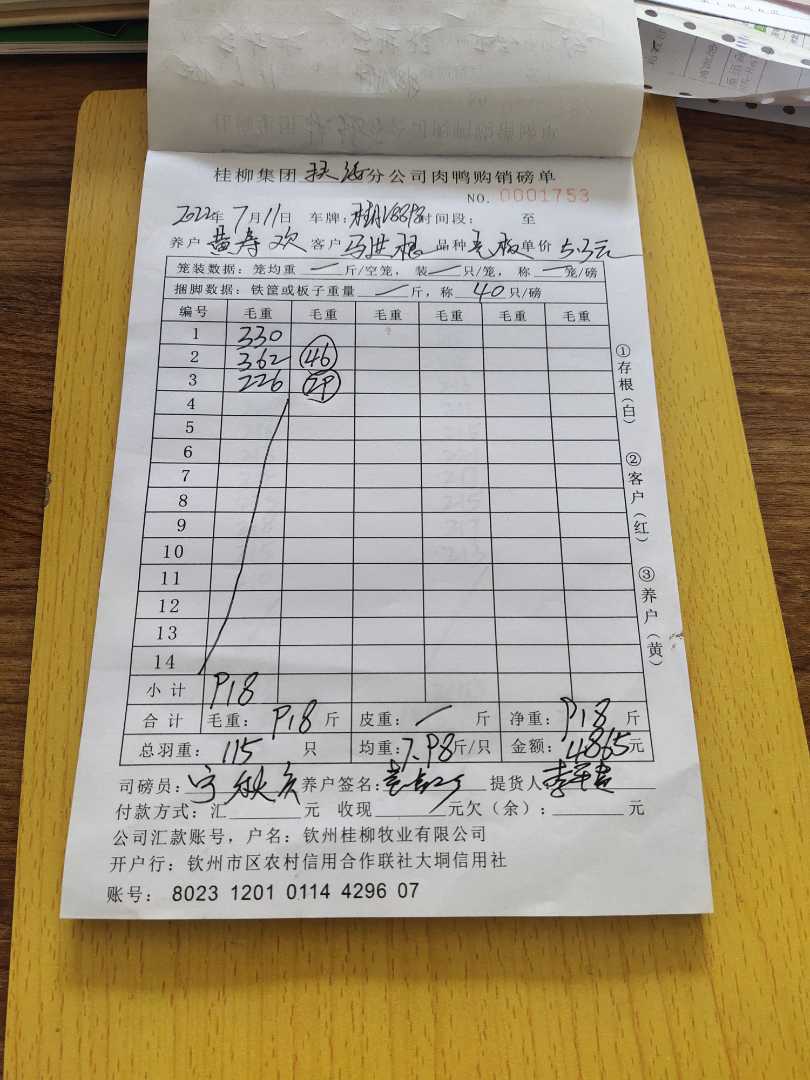 桂柳集团 扶海 分公司肉鸭购销磅单
NO. 0001753
2022年7月11日 车牌: 时间段: 至
养户 黄寿欢 客户 马世根 品种 毛板 单价 5.3元
笼装数据：笼均重 — 斤/空笼，装 — 只/笼，称 — 笼/磅
捆脚数据：铁筐或板子重量 — 斤，称 40 只/磅
编号 毛重 毛重 毛重 毛重 毛重 毛重
1 330
2 362 46
3 226 29
4
5
6
7
8
9
10
11
12
13
14
小计 918
合计 毛重：918斤 皮重：— 斤 净重：918斤
总羽重：115 只 均重：7.98斤/只 金额：4865元
司磅员： 养户签名： 提货人
付款方式：汇 元 收现 元欠（余）： 元
公司汇款账号，户名：钦州桂柳牧业有限公司
开户行：钦州市区农村信用合作联社大垌信用社
账号：8023 1201 0114 4296 07
①存根（白）
②客户（红）
③养户（黄）